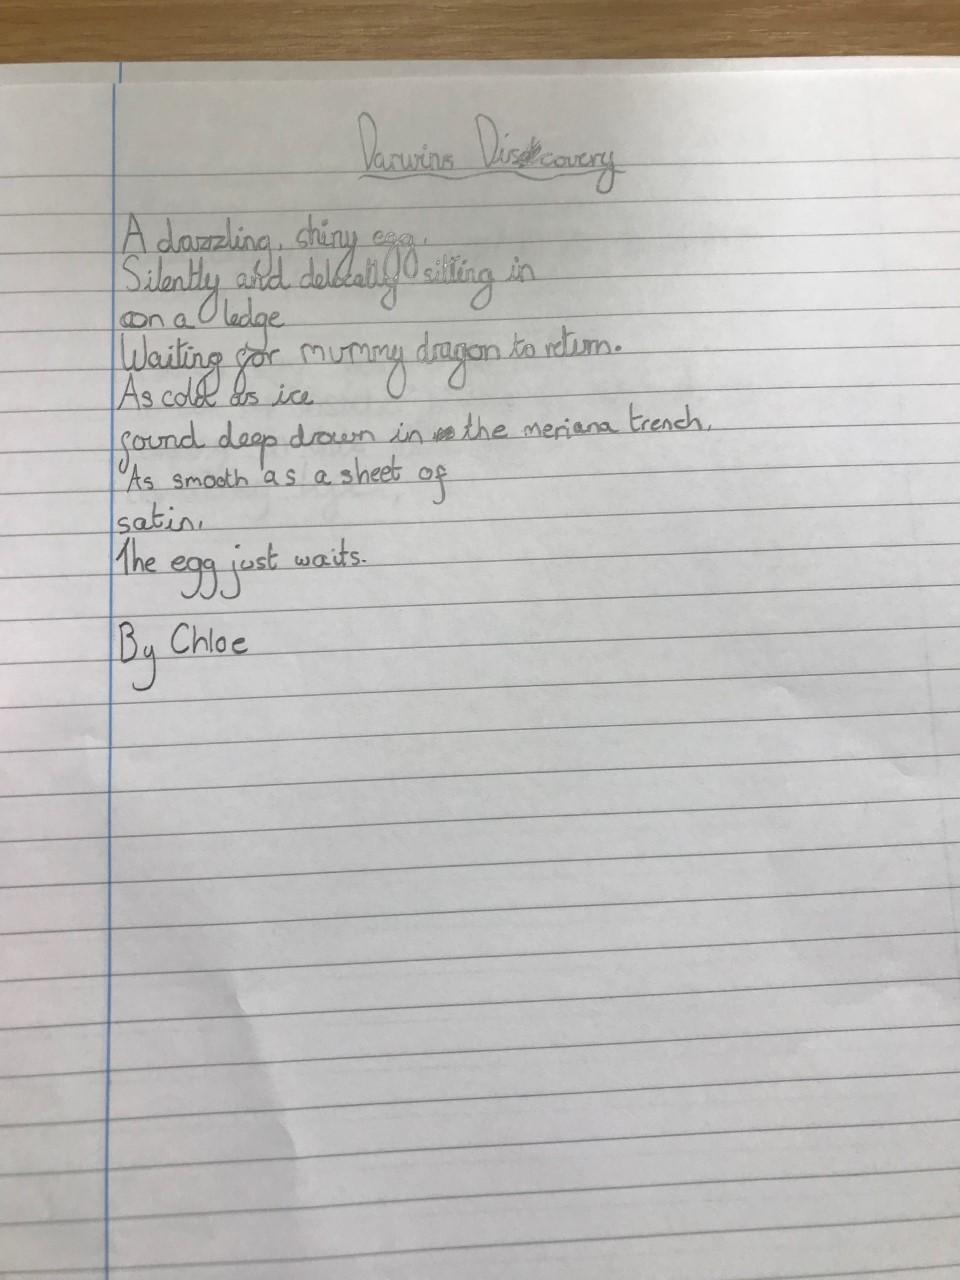 Darwins Discovery
A dazzling, shiny egg.
Silently and delically sitting in
on a ledge
Waiting for mummy dragon to return.
As cold as ice
found deep drown in the meriana trench.
As smooth as a sheet of
satin,
The egg just waits.
By Chloe